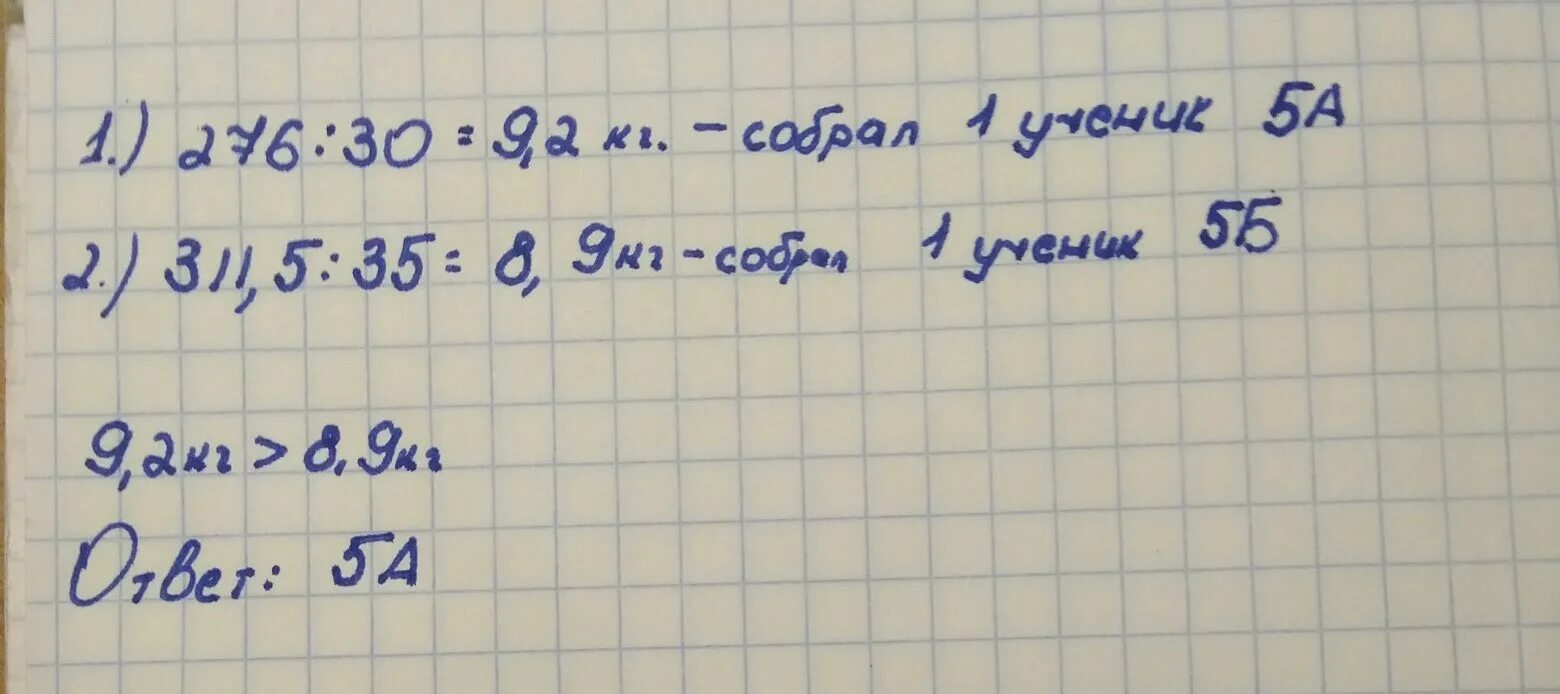 1.) 276:30 = 9,2 кг. - собрал 1 ученик 5А
2.) 311,5:35 = 8, 9кг - собрал 1 ученик 5Б
9,2кг > 8,9кг
Ответ: 5А